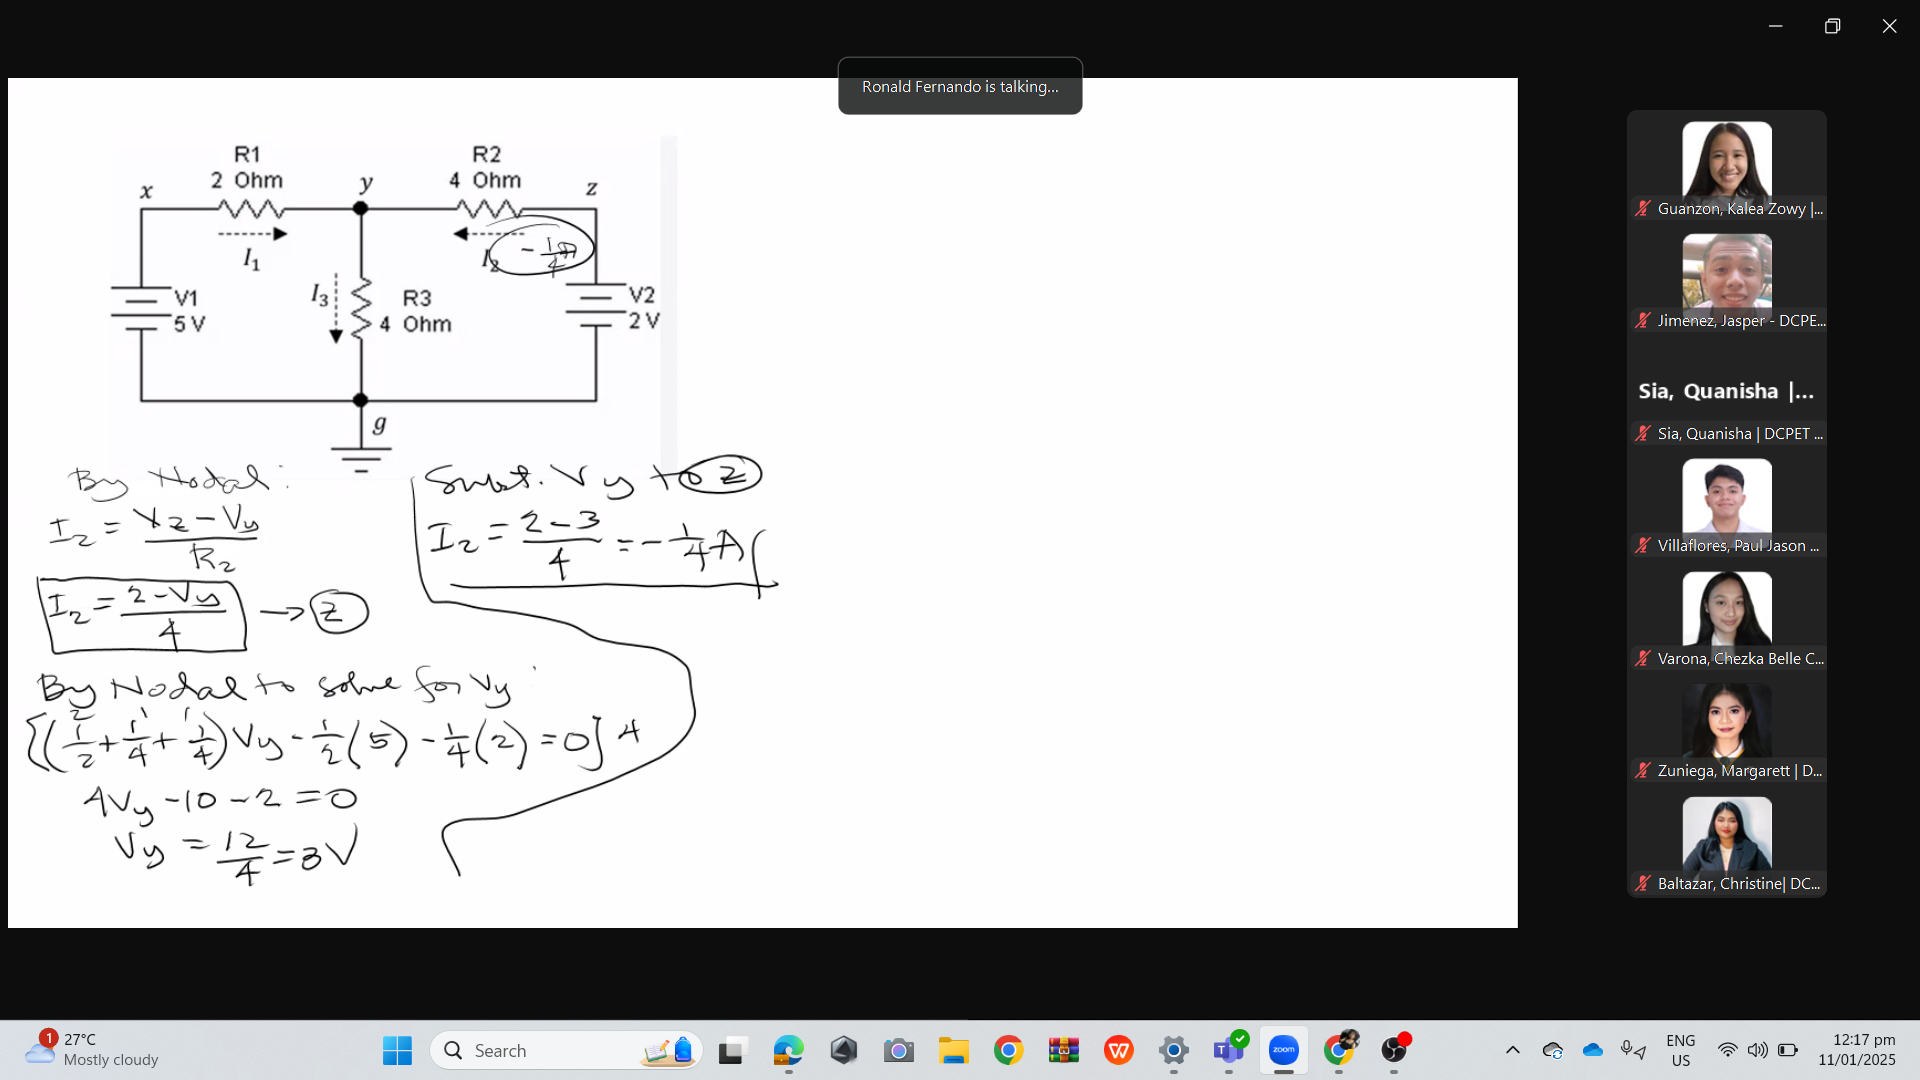 Ronald Fernando is talking...
R1
2 Ohm
R2
4 Ohm
x
y
z
I₁
I₂
- 1/4 A
I₃
R3
4 Ohm
V1
5 V
V2
2 V
g
By Nodal:
I₂ = Vz - Vy / R₂
I₂ = 2 - Vy / 4 → z
By Nodal to solve for Vy:
2 1 1
[(1/2 + 1/4 + 1/4) Vy - 1/2 (5) - 1/4 (2) = 0] 4
4Vy - 10 - 2 = 0
Vy = 12/4 = 3V
Subst. Vy to z
I₂ = 2 - 3 / 4 = - 1/4 A
Guanzon, Kalea Zowy |...
Jimenez, Jasper - DCPE...
Sia, Quanisha |...
Sia, Quanisha | DCPET ...
Villaflores, Paul Jason ...
Varona, Chezka Belle C...
Zuniega, Margarett | D...
Baltazar, Christine| DC...
1
27°C
Mostly cloudy
Search
W
zoom
ENG
US
12:17 pm
11/01/2025